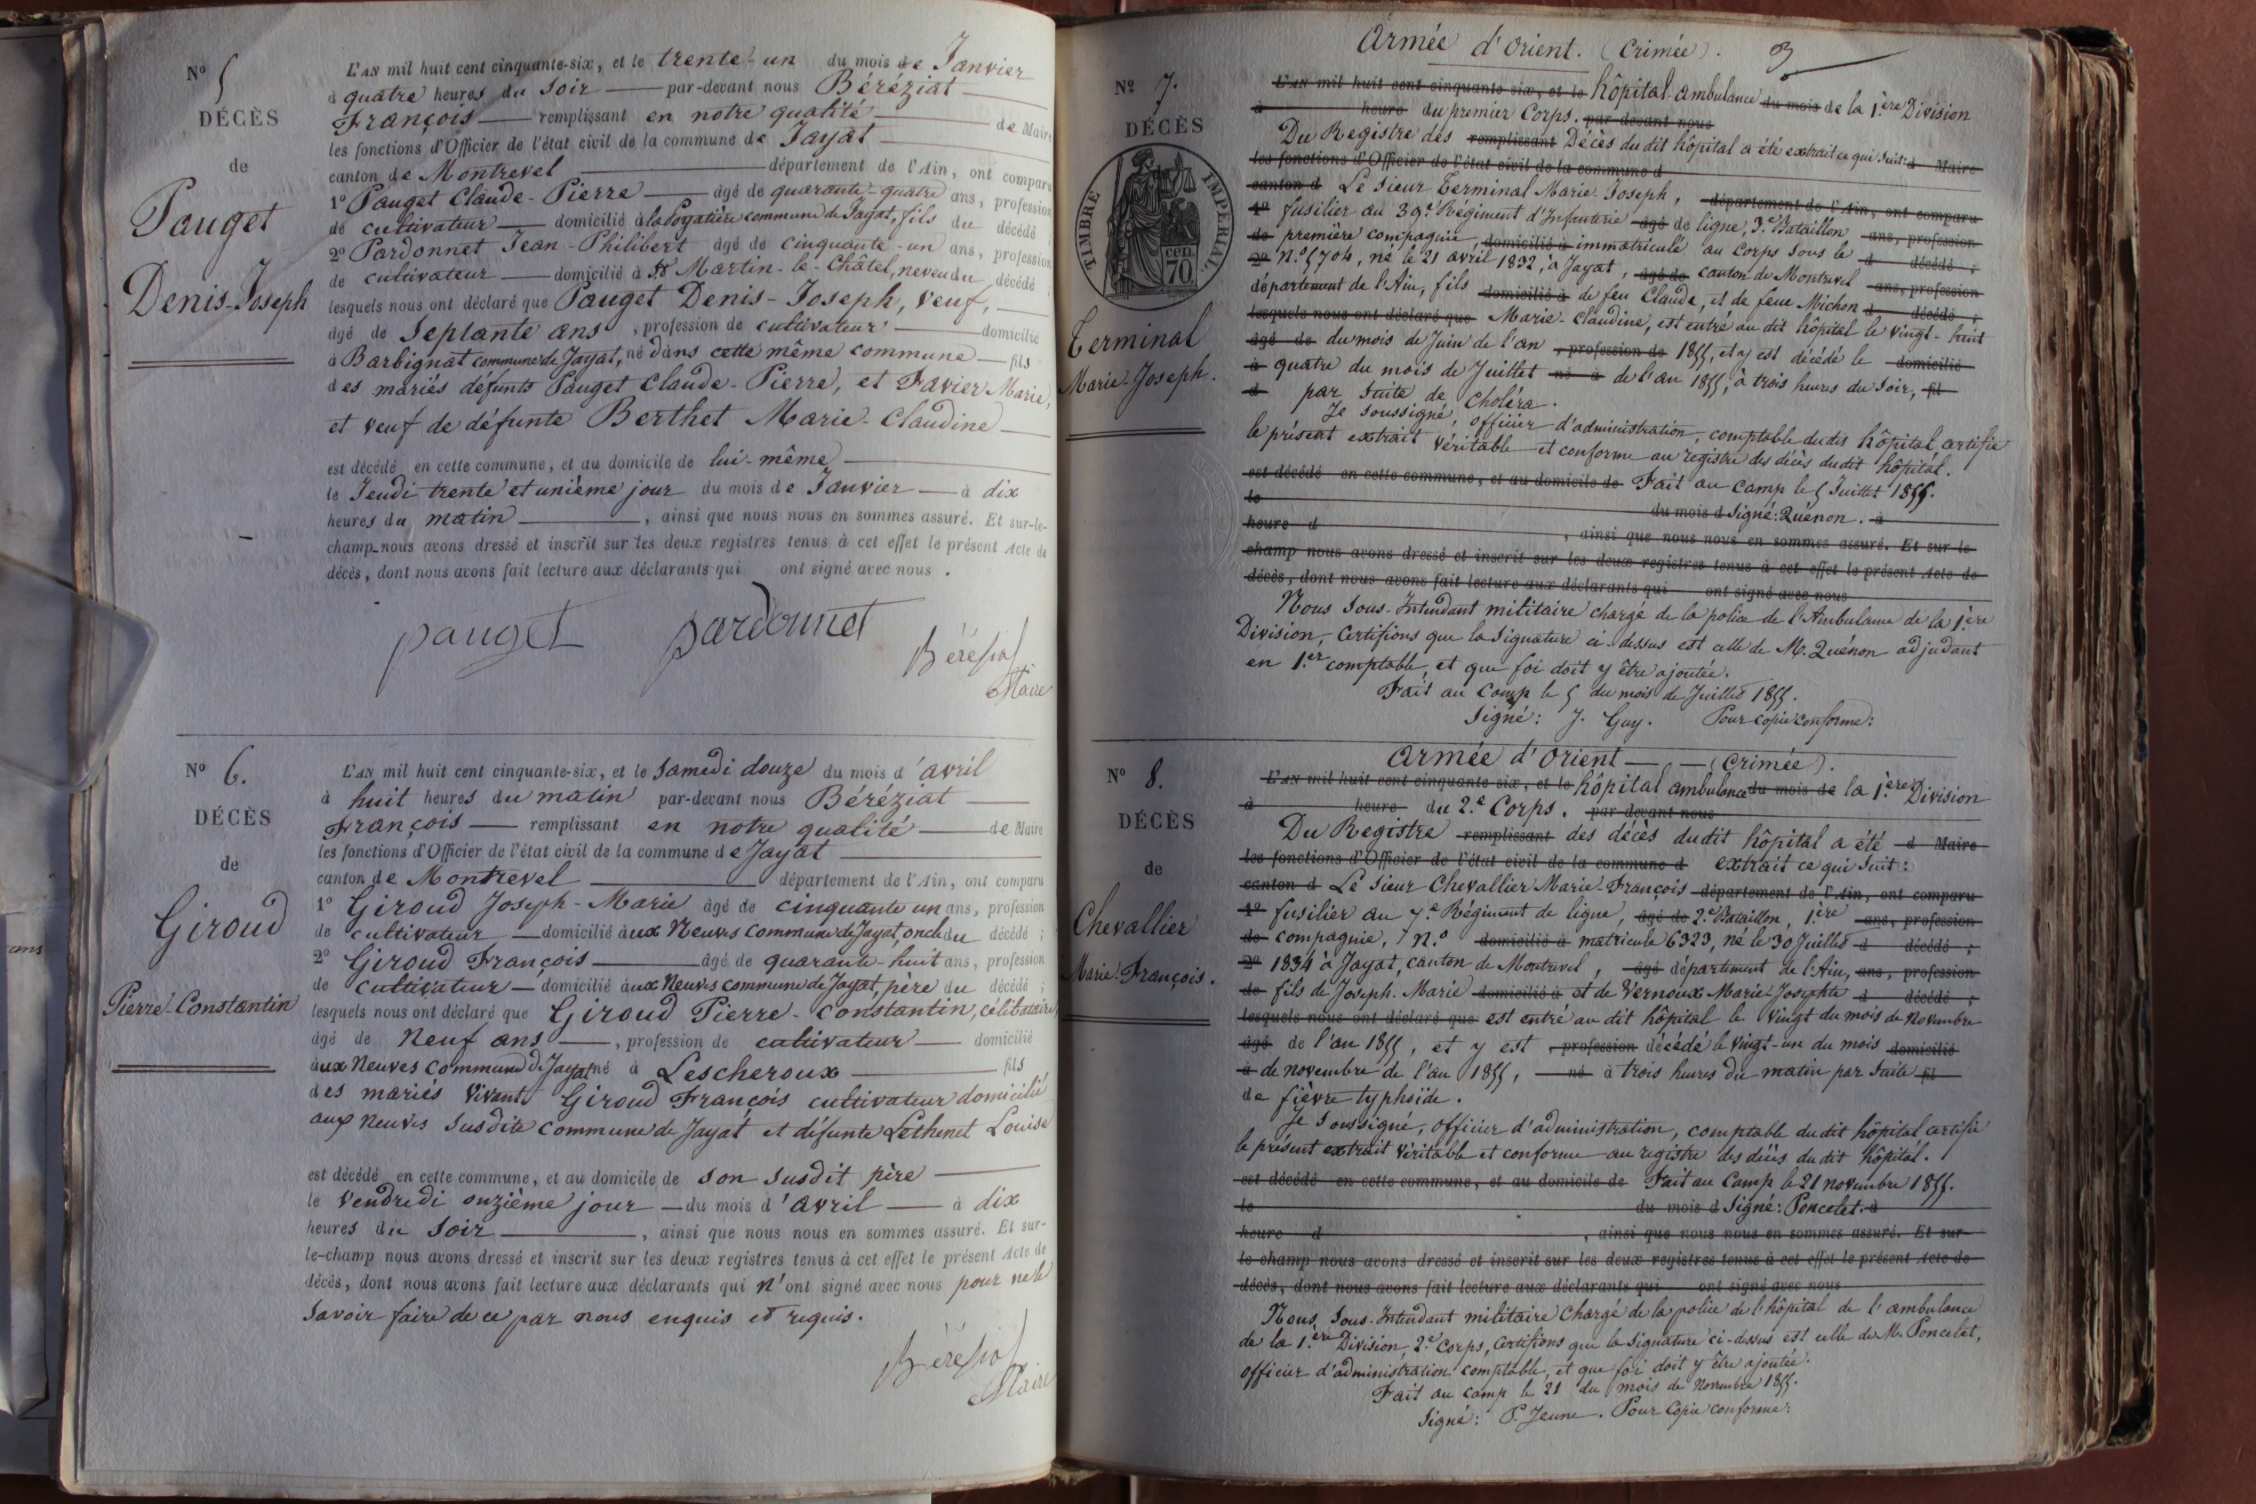 Nº 5
DÉCÈS
de
Pauget
Denis-Joseph
L'AN mil huit cent cinquante-six, et le trente-un du mois de Janvier
à quatre heures du soir par-devant nous Béréziat
François remplissant en notre qualité de Maire
les fonctions d'Officier de l'état civil de la commune de Jayat
canton de Montrevel département de l'Ain, ont comparu
1º Pauget Claude-Pierre âgé de quarante-quatre ans, profession
de cultivateur domicilié à la Poyatière commune de Jayat, fils du décédé ;
2º Pardonnet Jean-Philibert âgé de cinquante-un ans, profession
de cultivateur domicilié à St Martin-le-Châtel, neveu du décédé ;
lesquels nous ont déclaré que Pauget Denis-Joseph, veuf,
âgé de septante ans, profession de cultivateur domicilié
à Barbignat commune de Jayat, né dans cette même commune fils
des mariés défunts Pauget Claude-Pierre, et Favier Marie,
et veuf de défunte Berthet Marie-Claudine
est décédé en cette commune, et au domicile de lui-même
le Jeudi trente et unième jour du mois de Janvier à dix
heures du matin, ainsi que nous nous en sommes assuré. Et sur-le-
champ nous avons dressé et inscrit sur les deux registres tenus à cet effet le présent Acte de
décès, dont nous avons fait lecture aux déclarants qui ont signé avec nous.
pauget pardonnet Béréziat
Maire
Nº 6.
DÉCÈS
de
Giroud
Pierre-Constantin
L'AN mil huit cent cinquante-six, et le samedi douze du mois d'avril
à huit heures du matin par-devant nous Béréziat
François remplissant en notre qualité de Maire
les fonctions d'Officier de l'état civil de la commune de Jayat
canton de Montrevel département de l'Ain, ont comparu
1º Giroud Joseph-Marie âgé de cinquante un ans, profession
de cultivateur domicilié aux Neuves commune de Jayat, oncle du décédé ;
2º Giroud François âgé de quarante-huit ans, profession
de cultivateur domicilié aux Neuves commune de Jayat, père du décédé ;
lesquels nous ont déclaré que Giroud Pierre-Constantin, célibataire,
âgé de Neuf ans, profession de cultivateur domicilié
aux Neuves commune de Jayat né à Lescheroux fils
des mariés vivants Giroud François cultivateur domicilié
aux Neuves susdite commune de Jayat et défunte Lethenet Louise
est décédé en cette commune, et au domicile de son susdit père
le vendredi onzième jour du mois d'avril à dix
heures du soir, ainsi que nous nous en sommes assuré. Et sur-
le-champ nous avons dressé et inscrit sur les deux registres tenus à cet effet le présent Acte de
décès, dont nous avons fait lecture aux déclarants qui n'ont signé avec nous pour ne le
savoir faire de ce par nous enquis et requis.
Béréziat
Maire
Armée d'Orient. (Crimée). 3
Nº 7.
DÉCÈS
TIMBRE IMPÉRIAL
CEN. 70
Terminal
Marie-Joseph.
L'AN mil huit cent cinquante-six, et le hôpital-ambulance du mois de la 1.ère Division
à heure du premier Corps. par-devant nous
Du Registre des remplissant Décès du dit hôpital a été extrait ce qui suit : d Maire
les fonctions d'Officier de l'état civil de la commune d
canton d Le sieur Terminal Marie-Joseph, département de l'Ain, ont comparu
1º fusilier au 39.e Régiment d'Infanterie âgé de ligne, 3.e Bataillon ans, profession
de première compagnie, domicilié à immatriculé au corps sous le d décédé ;
2º N.º 5704, né le 21 avril 1832, à Jayat, âgé de canton de Montrevel ans, profession
département de l'Ain, fils domicilié à de feu Claude, et de feue Michon d décédé ;
lesquels nous ont déclaré que Marie-Claudine, est entré au dit hôpital le vingt-huit
âgé de du mois de Juin de l'an, profession de 1855, et y est décédé le domicilié
à quatre du mois de Juillet né à de l'an 1855, à trois heures du soir, fil
d par suite de choléra.
Je soussigné, officier d'administration, comptable dudit hôpital certifie
le présent extrait véritable et conforme au registre des décès dudit hôpital.
est décédé en cette commune, et au domicile de Fait au camp le 5 Juillet 1855.
le du mois d Signé : Quénon. à
heure d, ainsi que nous nous en sommes assuré. Et sur-le-
champ nous avons dressé et inscrit sur les deux registres tenus à cet effet le présent Acte de
décès, dont nous avons fait lecture aux déclarants qui ont signé avec nous
Nous Sous-Intendant militaire chargé de la police de l'Ambulance de la 1.ère
Division, certifions que la signature ci-dessus est celle de M. Quénon adjudant
en 1.er comptable, et que foi doit y être ajoutée.
Fait au camp le 5 du mois de Juillet 1855.
Signé : J. Guy. Pour copie conforme :
Armée d'Orient — (Crimée).
Nº 8.
DÉCÈS
de
Chevallier
Marie-François.
L'AN mil huit cent cinquante-six, et le hôpital ambulance du mois de la 1.ère Division
à heure du 2.e Corps. par-devant nous
Du Registre remplissant des décès dudit hôpital a été d Maire
les fonctions d'Officier de l'état civil de la commune d extrait ce qui suit :
canton d Le sieur Chevallier Marie-François département de l'Ain, ont comparu
1º fusilier au 7.e Régiment de ligne, âgé de 2.e Bataillon, 1ère ans, profession
de compagnie, N.º domicilié à matricule 6323, né le 30 Juillet d décédé ;
2º 1834 à Jayat, canton de Montrevel, âgé département de l'Ain, ans, profession
de fils de Joseph-Marie domicilié à et de Vernoux Marie-Josephte d décédé ;
lesquels nous ont déclaré que est entré au dit hôpital le vingt du mois de Novembre
âgé de l'an 1855, et y est, profession décédé le vingt-un du mois domicilié
à de novembre de l'an 1855, né à trois heures du matin par suite fil
de fièvre typhoïde.
Je soussigné, officier d'administration, comptable dudit hôpital certifie
le présent extrait véritable et conforme au registre des décès dudit hôpital.
est décédé en cette commune, et au domicile de Fait au Camp le 21 novembre 1855.
le du mois d Signé : Poncelet. à
heure d, ainsi que nous nous en sommes assuré. Et sur-
le-champ nous avons dressé et inscrit sur les deux registres tenus à cet effet le présent Acte de
décès, dont nous avons fait lecture aux déclarants qui ont signé avec nous
Nous, Sous-Intendant militaire chargé de la police de l'hôpital de l'ambulance
de la 1.ère Division, 2.e Corps, certifions que la signature ci-dessus est celle de M. Poncelet,
officier d'administration comptable, et que foi doit y être ajoutée.
Fait au camp le 21 du mois de Novembre 1855.
Signé : P. Jeune. Pour Copie conforme :